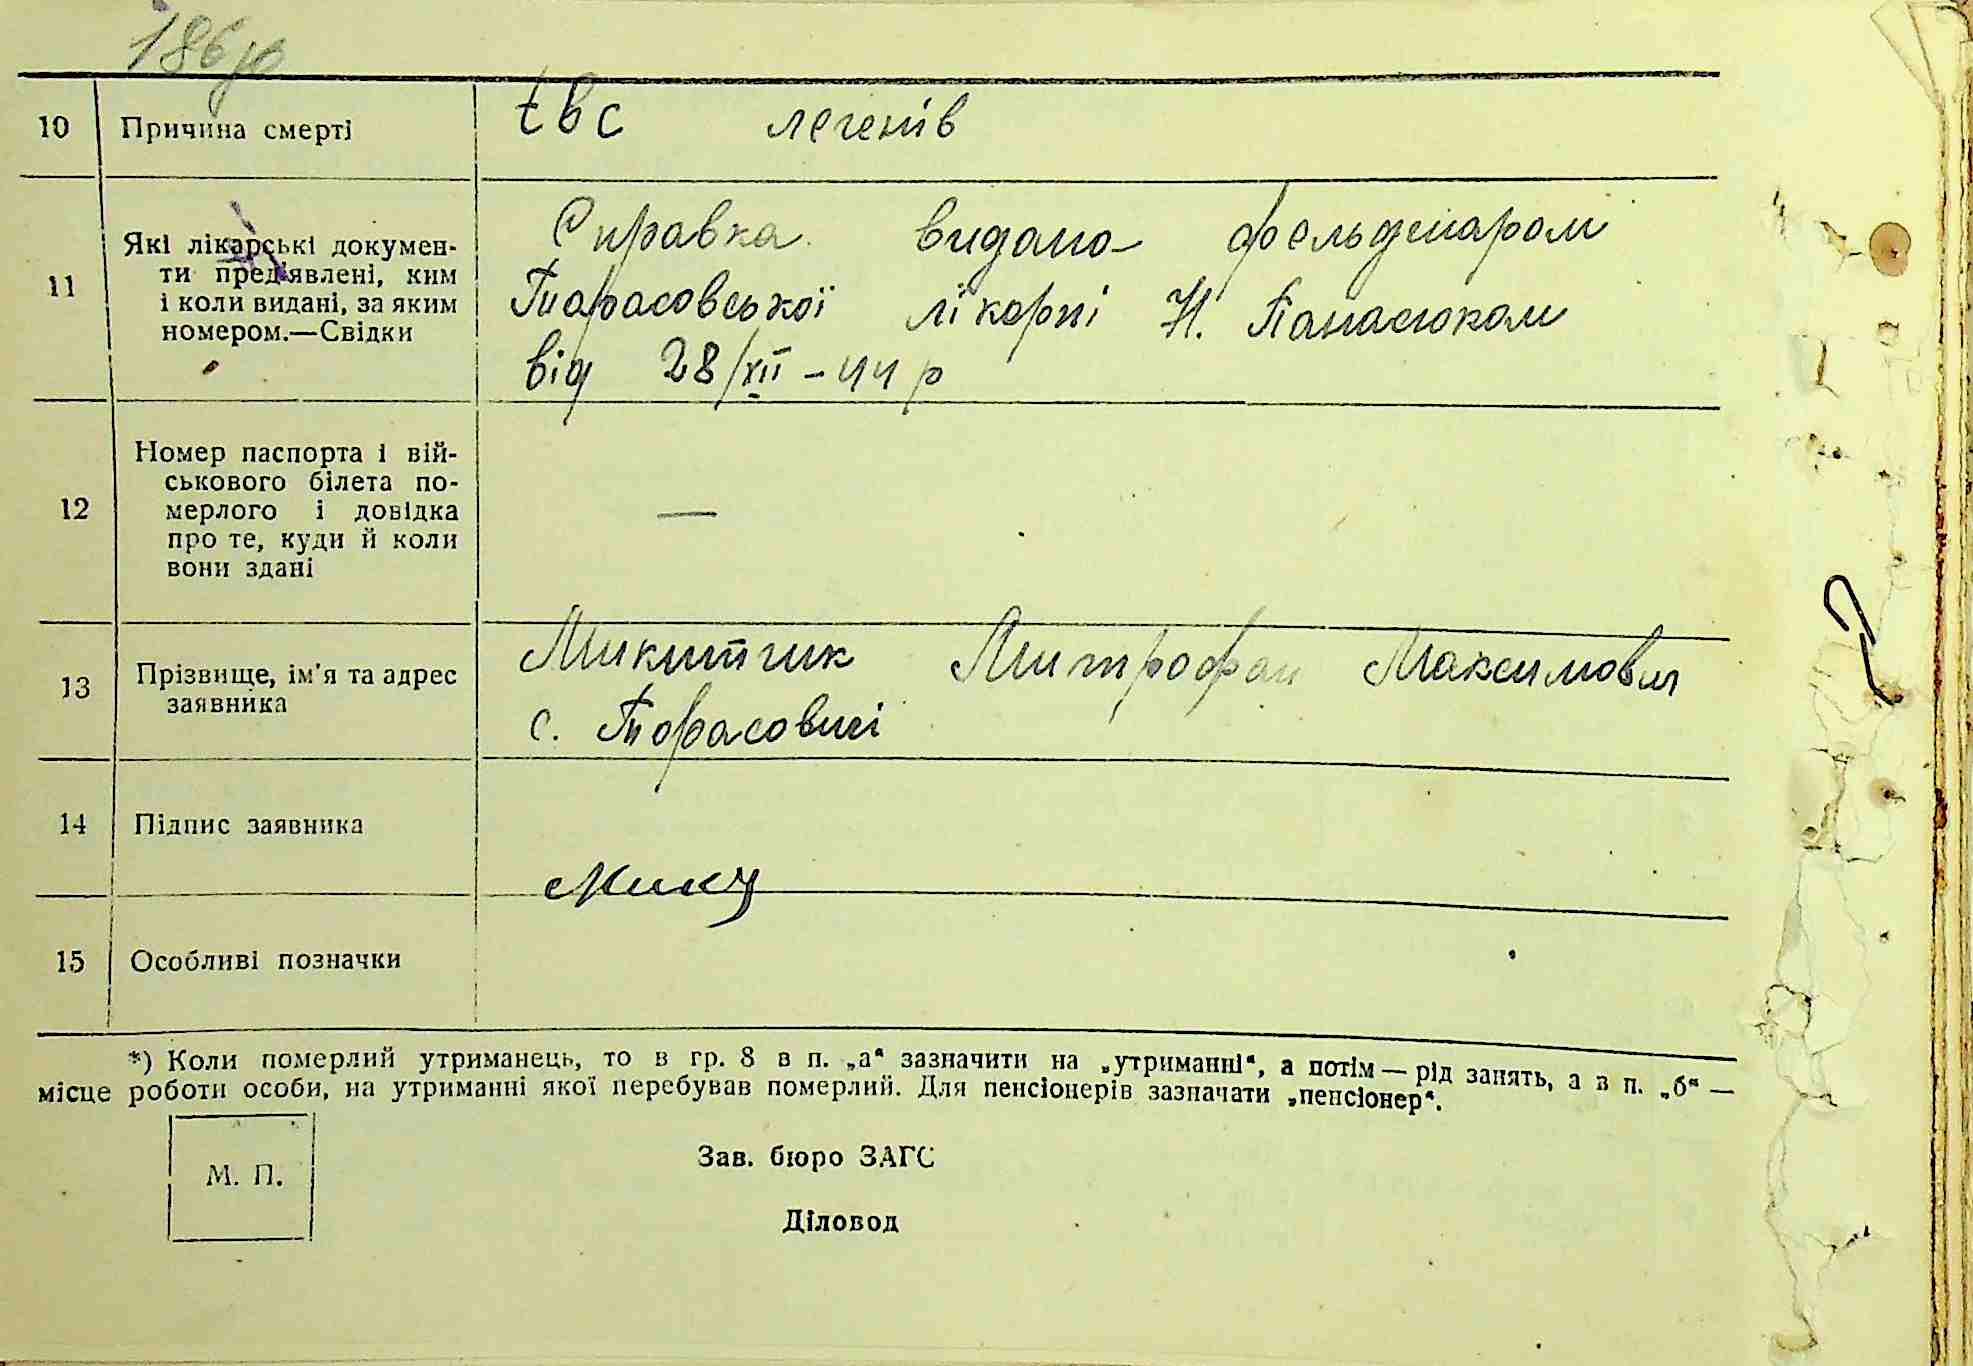 186
10 Причина смерті tbc легенів
11 Які лікарські докумен-
ти пред'явлені, ким
і коли видані, за яким
номером.—Свідки
Справка видано фельдшаром
Тарасовської лікарні Н. Панасюком
від 28/XII – 44 р
12 Номер паспорта і вій-
ськового білета по-
мерлого і довідка
про те, куди й коли
вони здані
—
13 Прізвище, ім'я та адрес
заявника
Микитчик Митрофан Максимович
с. Тарасовичі
14 Підпис заявника
Мику
15 Особливі позначки
*) Коли померлий утриманець, то в гр. 8 в п. „а“ зазначити на „утриманні“, а потім — рід занять, а в п. „б“ —
місце роботи особи, на утриманні якої перебував померлий. Для пенсіонерів зазначати „пенсіонер“.
М. П.
Зав. бюро ЗАГС
Діловод